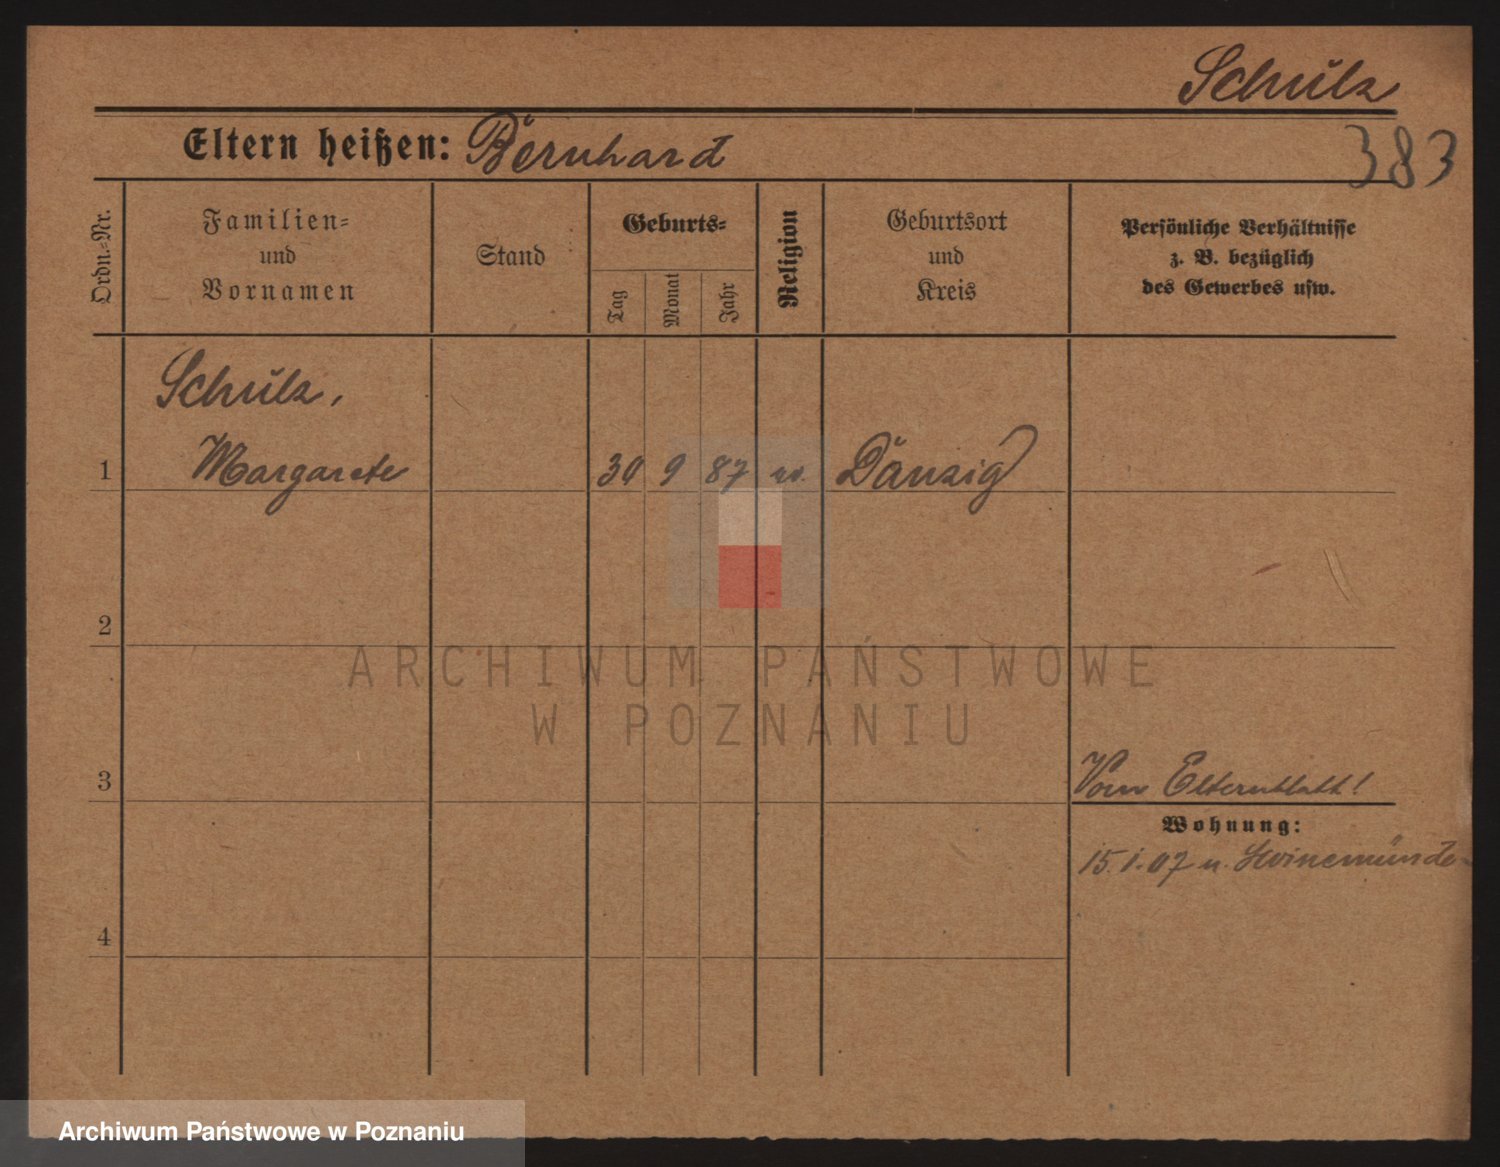 Schulz
Eltern heißen: Bernhard
383
Ordn.-Nr.
Familien-
und
Vornamen
Stand
Geburts-
Tag
Monat
Jahr
Religion
Geburtsort
und
Kreis
Persönliche Verhältnisse
z. B. bezüglich
des Gewerbes usw.
Schulz,
1 Margarete 30 9 87 Danzig
2
ARCHIWUM PAŃSTWOWE
W POZNANIU
3
Vom Elternblatt!
Wohnung:
15.1.07 n. Swinemünde
4
Archiwum Państwowe w Poznaniu